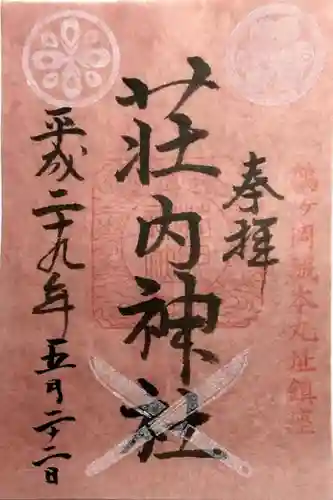 鶴ヶ岡城本丸址鎮座
奉拝
荘内神社
平成二十九年五月二十二日